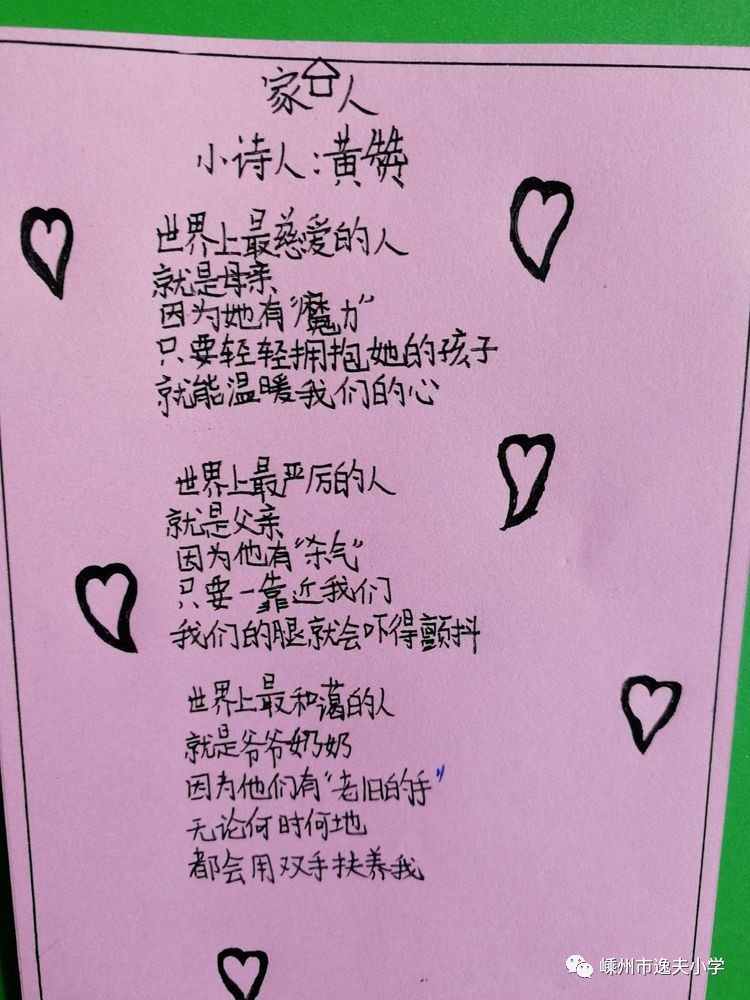 家人
小诗人:黄赞
世界上最慈爱的人
就是母亲
因为她有“魔力”
只要轻轻拥抱她的孩子
就能温暖我们的心
世界上最严厉的人
就是父亲
因为他有“杀气”
只要一靠近我们
我们的腿就会吓得颤抖
世界上最和蔼的人
就是爷爷奶奶
因为他们有“老旧的手”
无论何时何地
都会用双手扶养我
嵊州市逸夫小学